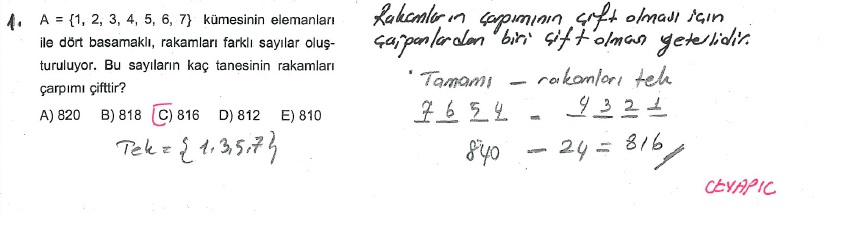 1. A = {1, 2, 3, 4, 5, 6, 7} kümesinin elemanları
ile dört basamaklı, rakamları farklı sayılar oluş-
turuluyor. Bu sayıların kaç tanesinin rakamları
çarpımı çifttir?
A) 820 B) 818 C) 816 D) 812 E) 810
Tek = {1,3,5,7}
Rakamların çarpımının çift olması için
çarpanlardan biri çift olması yeterlidir.
Tamamı – rakamları tek
7 6 5 4 - 4 3 2 1
840 – 24 = 816
CEVAP C